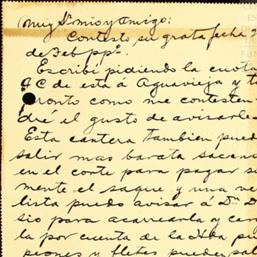 Muy Sr mio y Amigo:
Contesto su grata fecha 2
de Feb ppº.
Escribi pidiendo la cuota
de esta á Aguavieja y t
pronto como me contesten
dré el gusto de avisarle
Esta cantera tambien pued
salir mas barata sacand
en el corte para pagar s
mente el saque y una ve
lista puedo avisar á Dn D
sio para acarrearla y
la por cuenta de la Hda
peones y fletes pueden